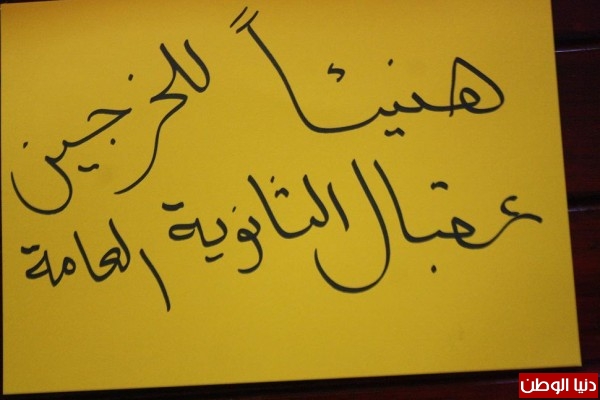 هنيئاً للخرجين
عقبال الثانوية العامة
دنيا الوطن